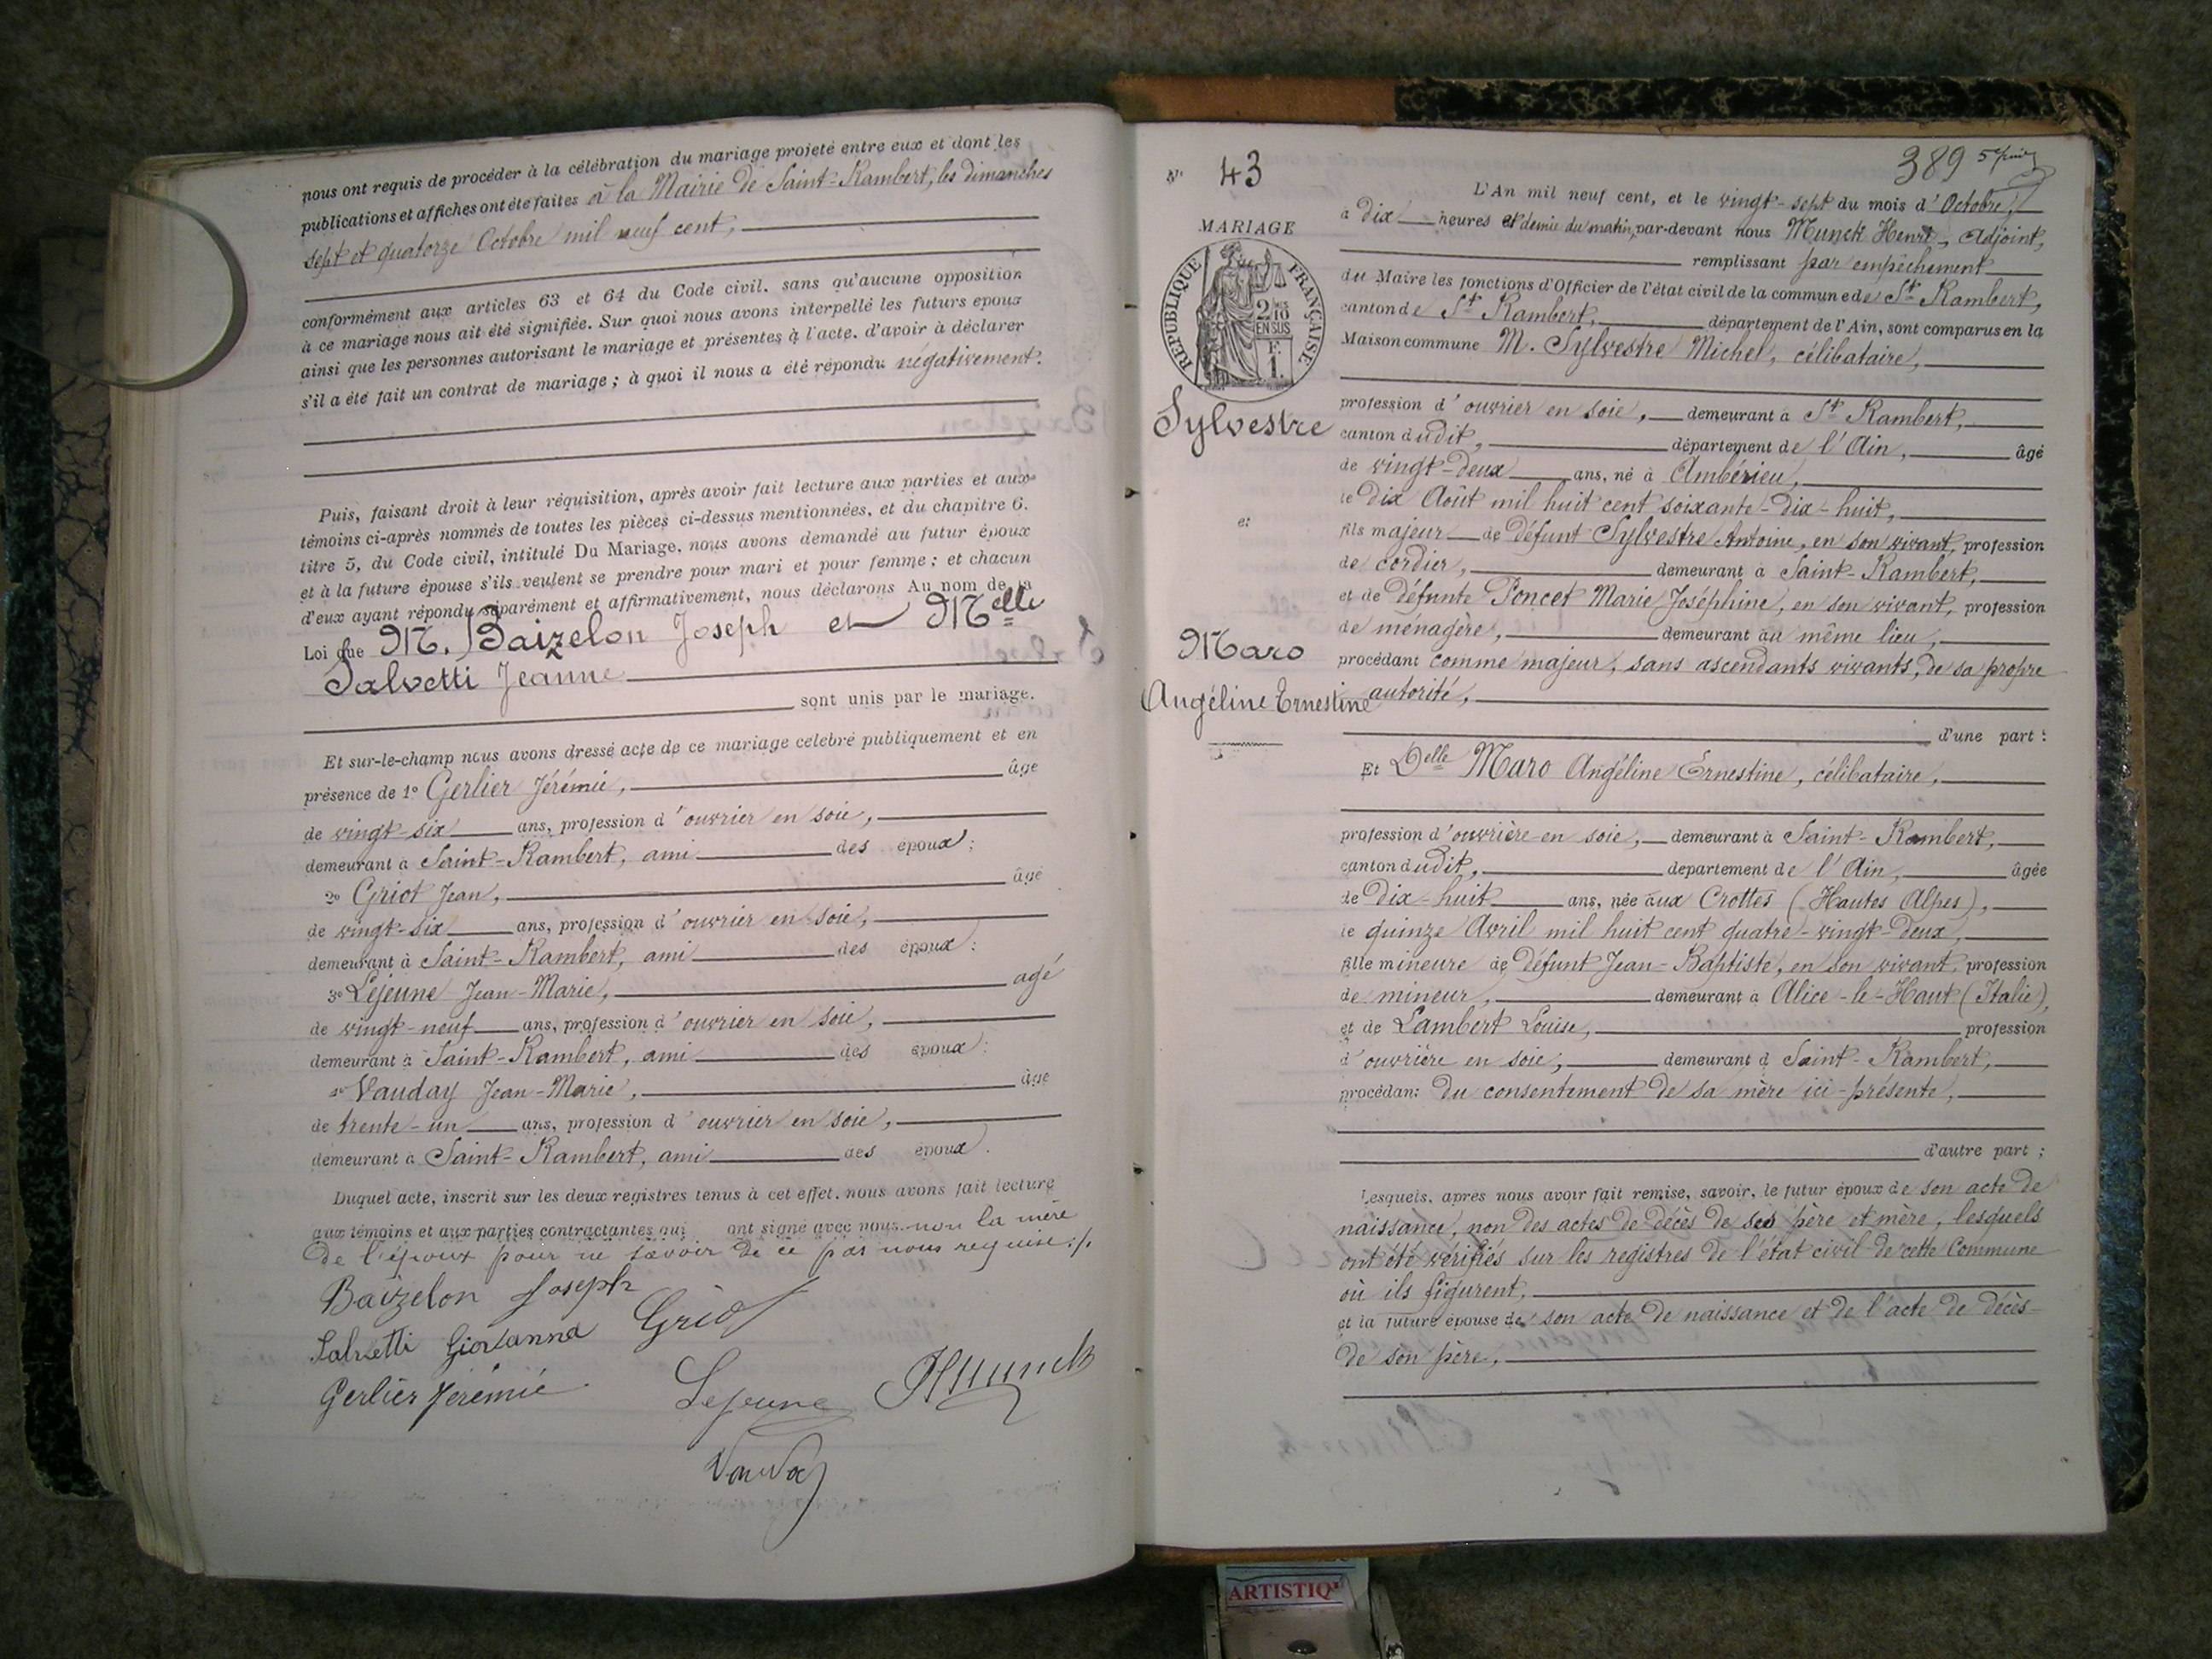 nous ont requis de procéder à la célébration du mariage projeté entre eux et dont les
publications et affiches ont été faites à la Mairie de Saint-Rambert, les dimanches
sept et quatorze Octobre mil neuf cent,
conformément aux articles 63 et 64 du Code civil, sans qu'aucune opposition
à ce mariage nous ait été signifiée. Sur quoi nous avons interpellé les futurs epoux
ainsi que les personnes autorisant le mariage et présentes à l'acte, d'avoir à déclarer
s'il a été fait un contrat de mariage ; à quoi il nous a été répondu négativement.
Puis, faisant droit à leur réquisition, après avoir fait lecture aux parties et aux
témoins ci-après nommés de toutes les pièces ci-dessus mentionnées, et du chapitre 6.
titre 5, du Code civil, intitulé Du Mariage, nous avons demandé au futur époux
et à la future épouse s'ils veulent se prendre pour mari et pour femme ; et chacun
d'eux ayant répondu séparément et affirmativement, nous déclarons Au nom de la
Loi que M. Baizelon Joseph et Melle
Salvetti Jeanne
sont unis par le mariage.
Et sur-le-champ nous avons dressé acte de ce mariage célébré publiquement et en
présence de 1º Gerlier Jérémie, âgé
de vingt-six ans, profession d'ouvrier en soie,
demeurant à Saint-Rambert, ami des époux ;
2º Griot Jean, âgé
de vingt-six ans, profession d'ouvrier en soie,
demeurant à Saint-Rambert, ami des époux ;
3º Lejeune Jean-Marie, agé
de vingt-neuf ans, profession d'ouvrier en soie,
demeurant à Saint-Rambert, ami des époux ;
4º Vauday Jean-Marie, âgé
de trente-un ans, profession d'ouvrier en soie,
demeurant à Saint-Rambert, ami des époux.
Duquel acte, inscrit sur les deux registres tenus à cet effet, nous avons fait lecture
aux témoins et aux parties contractantes qui ont signé avec nous non la mère
de l'époux pour ne savoir de ce par nous requise ./.
Baizelon Joseph
Salvetti Giovanna Griot
Gerlier Jérémie Lejeune HMunck
Vauday
Nº 43
389
MARIAGE
RÉPUBLIQUE FRANÇAISE
2 10 EN SUS
F. 1.
Sylvestre
et
Maro
Angéline Ernestine
L'An mil neuf cent, et le vingt-sept du mois d'Octobre,
à dix heures et demie du matin, par-devant nous Munck Henri, Adjoint,
remplissant par empêchement
du Maire les fonctions d'Officier de l'état civil de la commune de St Rambert,
canton de St Rambert, département de l'Ain, sont comparus en la
Maison commune M. Sylvestre Michel, célibataire,
profession d'ouvrier en soie, demeurant à St Rambert,
canton dudit, département de l'Ain, âgé
de vingt-deux ans, né à Ambérieu,
le dix Août mil huit cent soixante-dix-huit,
fils majeur de défunt Sylvestre Antoine, en son vivant, profession
de cordier, demeurant à Saint-Rambert,
et de défunte Poncet Marie Joséphine, en son vivant, profession
de ménagère, demeurant au même lieu,
procédant comme majeur, sans ascendants vivants, de sa propre
autorité,
d'une part ;
Et Delle Maro Angéline Ernestine, célibataire,
profession d'ouvrière en soie, demeurant à Saint-Rambert,
canton dudit, département de l'Ain, âgée
de dix-huit ans, née aux Crottes (Hautes Alpes),
le quinze Avril mil huit cent quatre-vingt-deux,
fille mineure de défunt Jean-Baptiste, en son vivant, profession
de mineur, demeurant à Alice-le-Haut (Italie),
et de Lambert Louise, profession
d'ouvrière en soie, demeurant à Saint-Rambert,
procédant du consentement de sa mère ici-présente,
d'autre part ;
Lesquels, après nous avoir fait remise, savoir, le futur époux de son acte de
naissance, non des actes de décès de ses père et mère, lesquels
ont été vérifiés sur les registres de l'état civil de cette Commune
où ils figurent,
et la future épouse de son acte de naissance et de l'acte de décès
de son père,
ARTISTIQ